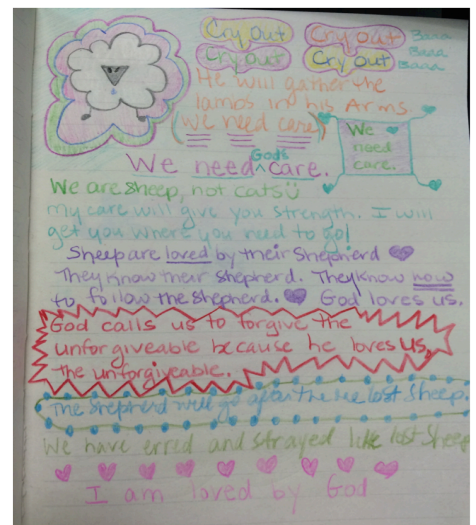 Cry out Cry out Baaa
Cry out Cry out Baaa
Baaa
He will gather the
lambs in his Arms.
(we need care)
We
need
care.
We need God's care.
We are sheep, not cats
my care will give you strength. I will
get you where you need to go!
Sheep are loved by their Shepherd
They know their shepherd. They know how
to follow the shepherd. God loves us.
God calls us to forgive the
unforgiveable because he loves us,
the unforgiveable.
The Shepherd will go after the lost sheep.
We have erred and strayed like lost sheep
I am loved by God